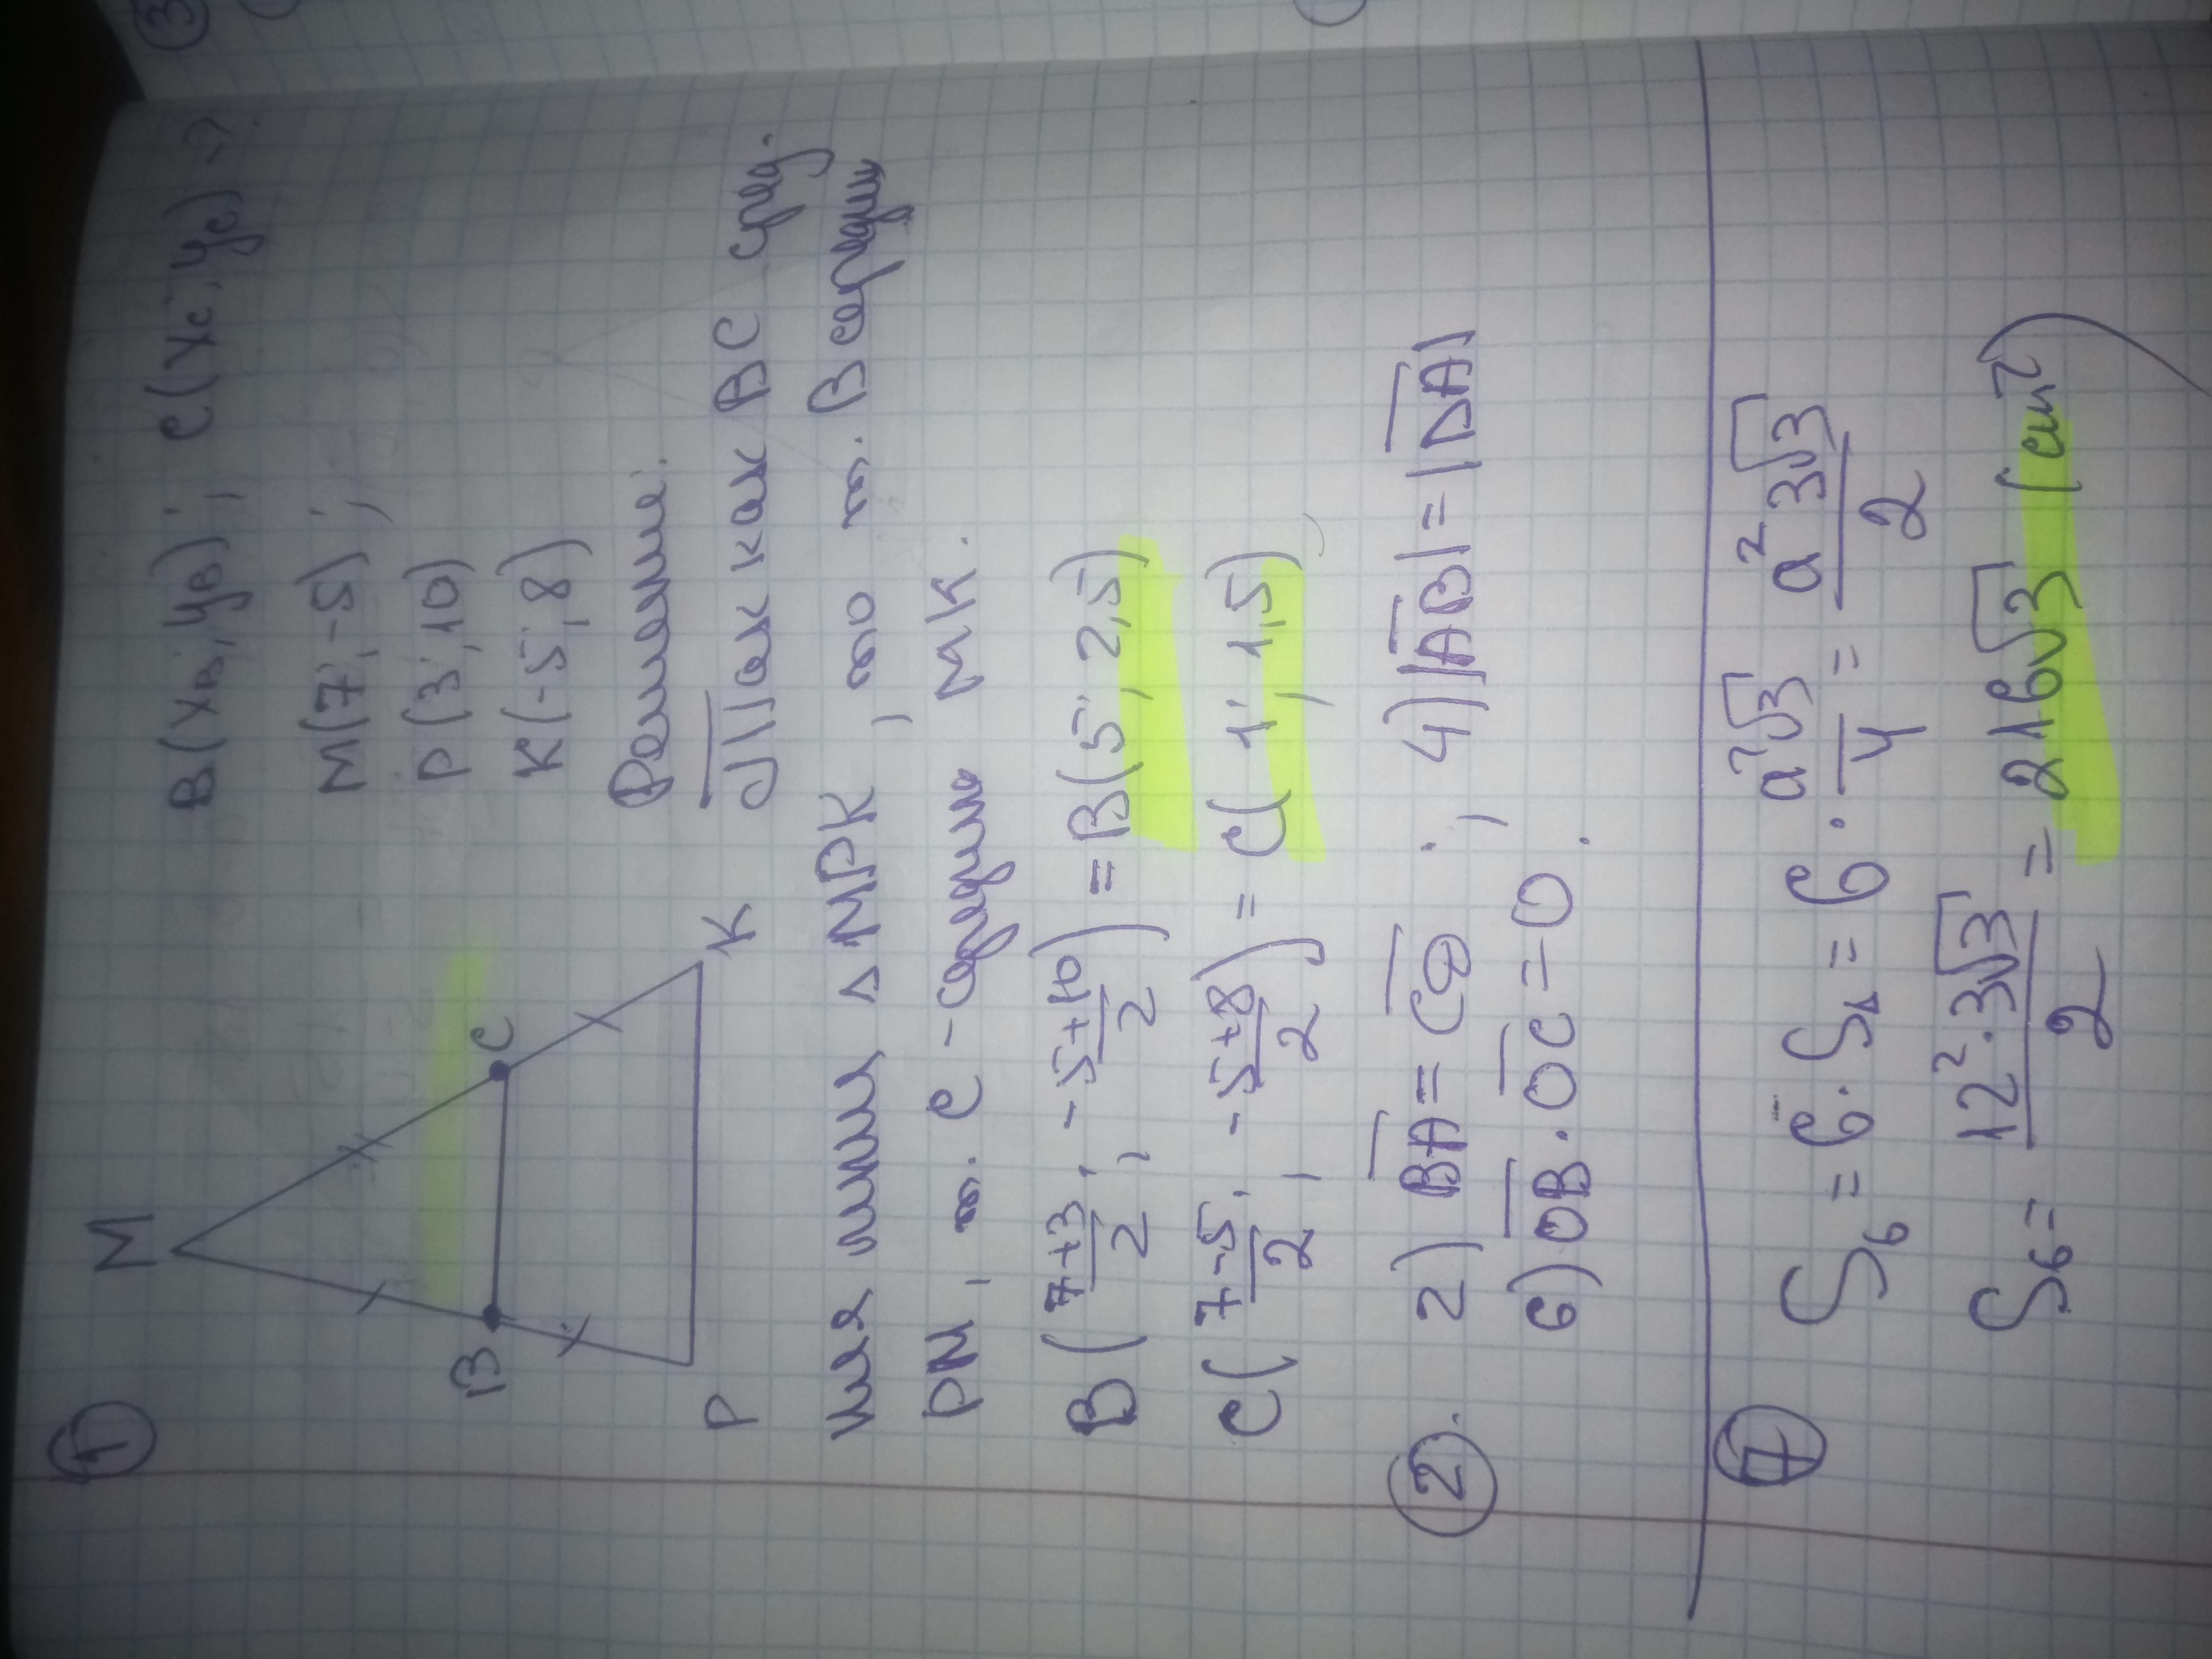 ①
M
B
C
P
K
B(xв; yв); C(xс; yс) -?
M(7; -5);
P(3; 10)
K(-5; 8)
Решение:
Так как BC сред.
няя линия ΔMPK, то т. B середина
PM, т. C - середина MK.
B(7+3/2; -5+10/2) = B(5; 2,5)
C(7-5/2; -5+8/2) = C(1; 1,5)
②. 2) BA = CD; 4) |AB| = |DA|
6) OB · OC = 0.
⑦ S₆ = 6 · S△ = 6 · a²√3/4 = a²3√3/2
S₆ = 12² · 3√3/2 = 216√3 (см²)
③